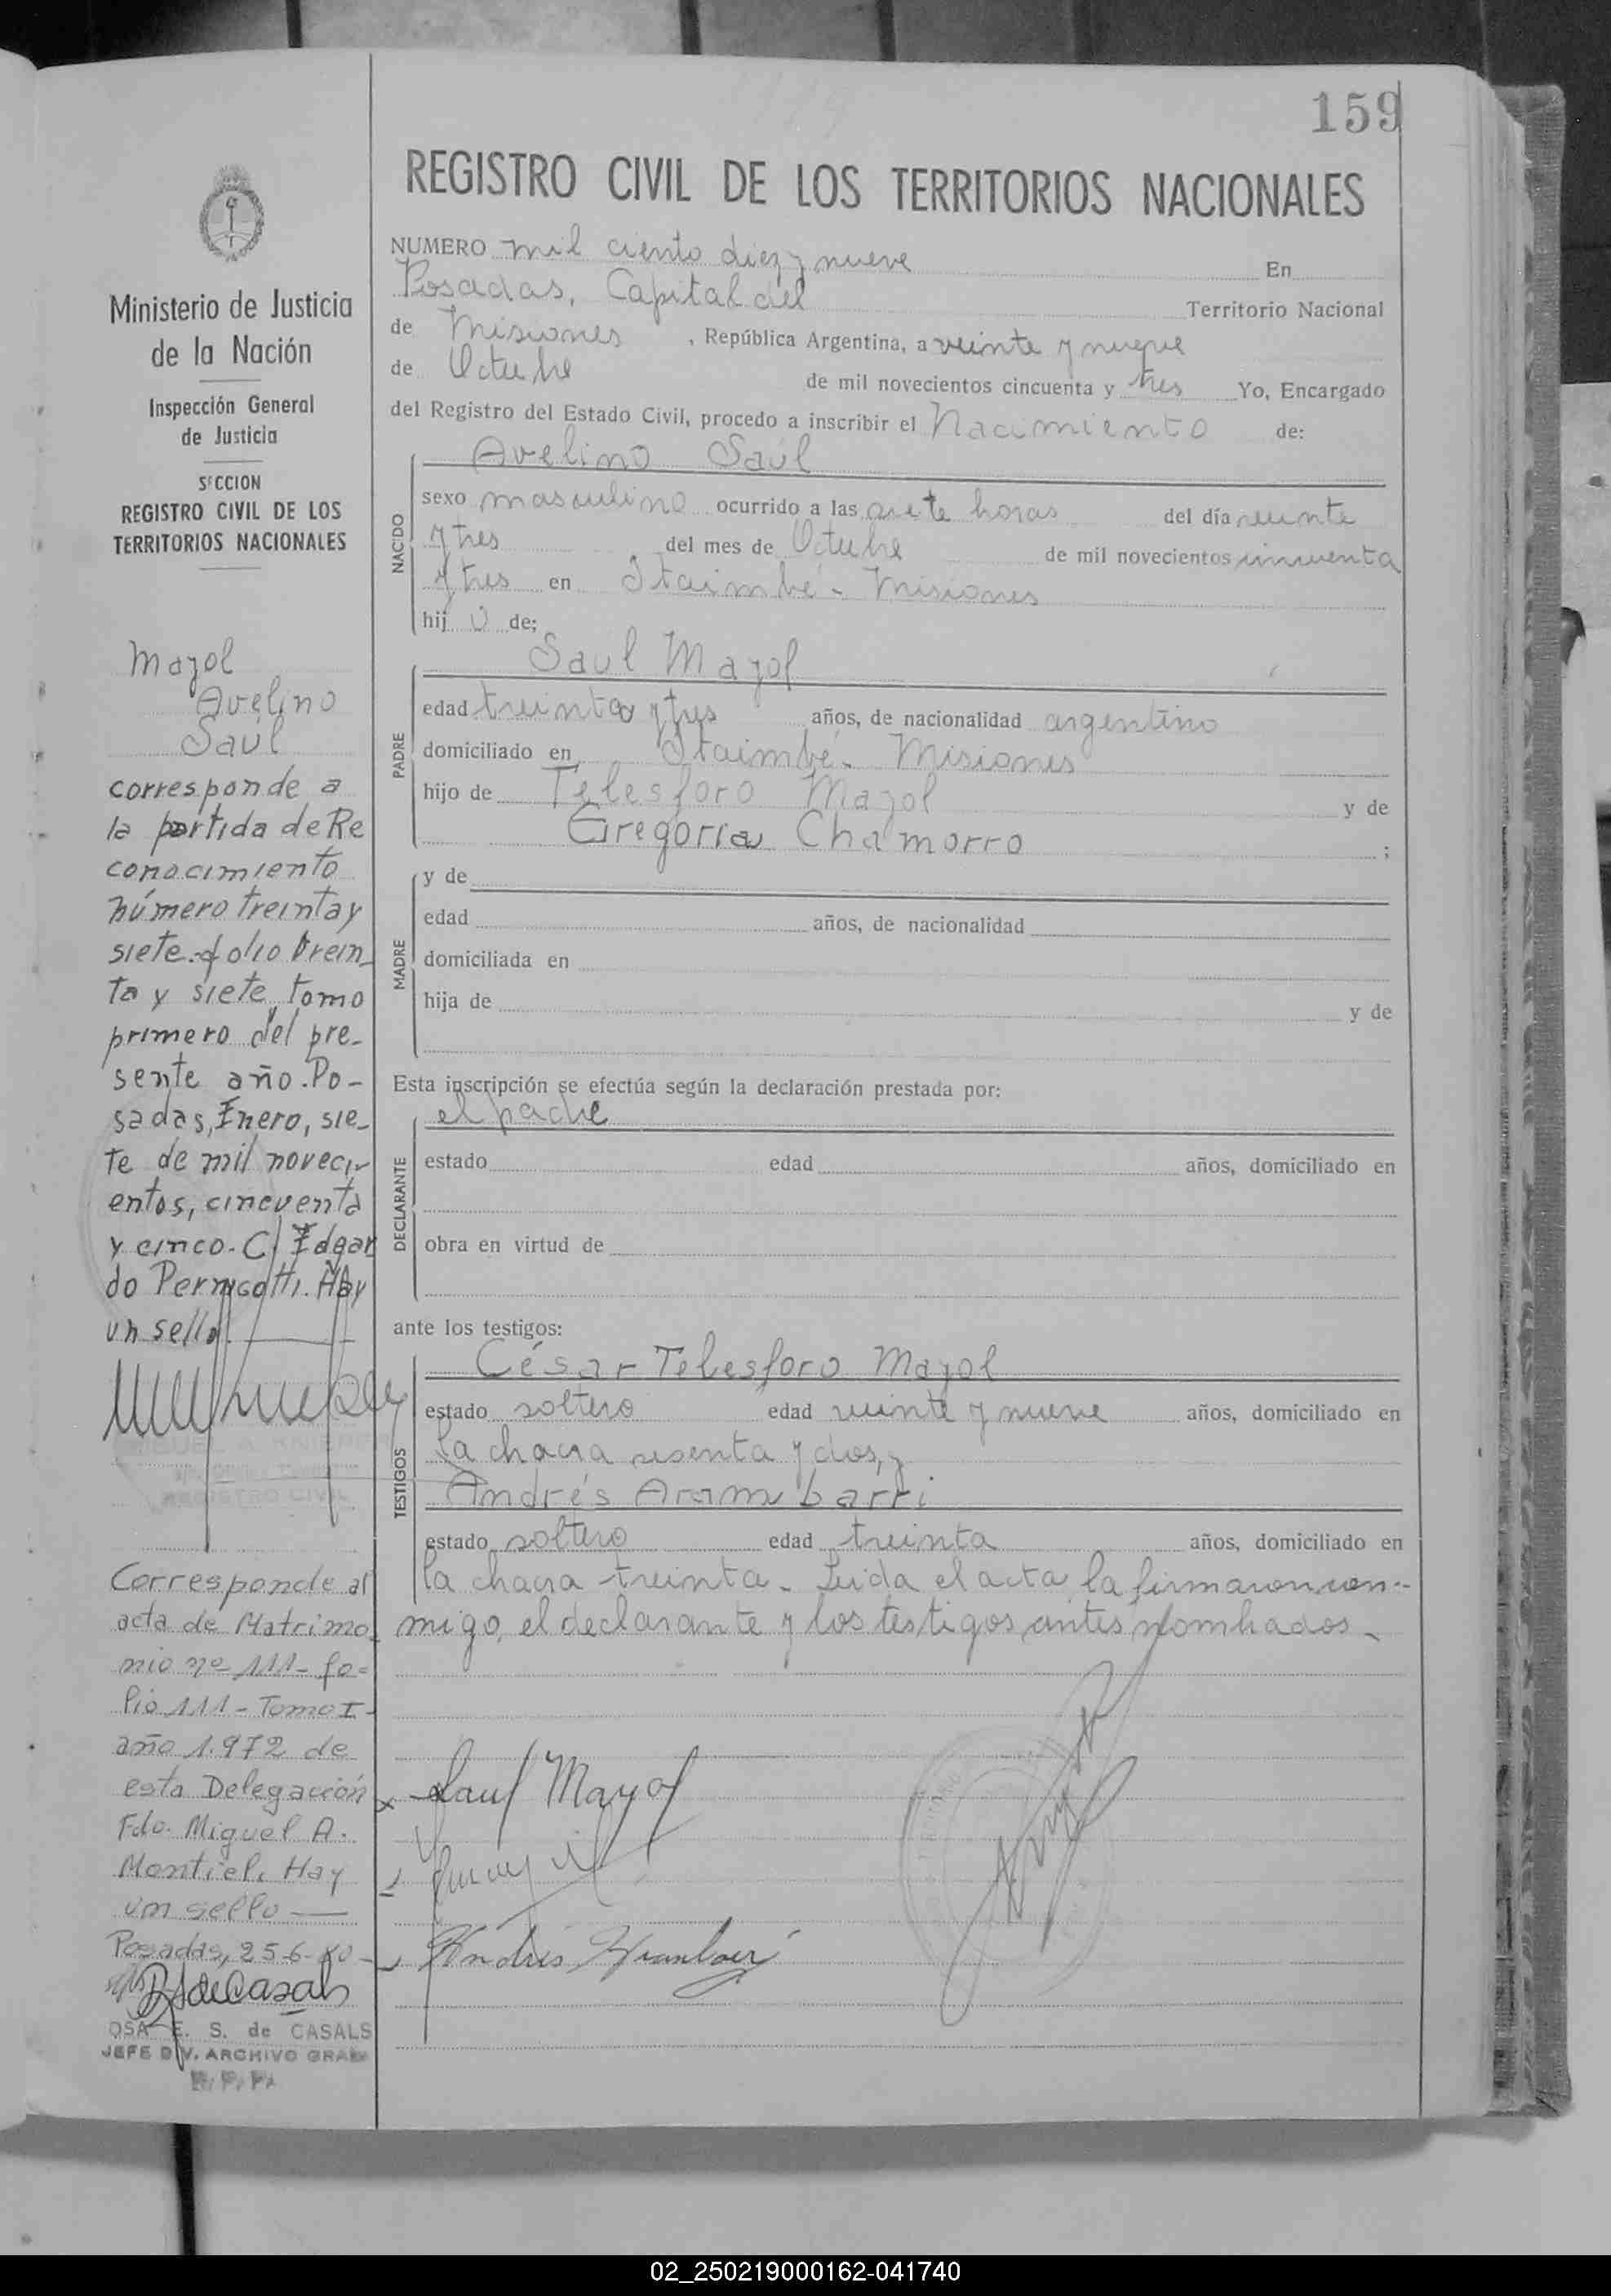 159
REGISTRO CIVIL DE LOS TERRITORIOS NACIONALES
NUMERO mil ciento diez y nueve En
Posadas, Capital del Territorio Nacional
de Misiones, República Argentina, a veinte y nueve
de Octubre de mil novecientos cincuenta y tres Yo, Encargado
del Registro del Estado Civil, procedo a inscribir el Nacimiento de:
Avelino Saúl
NACIDO
sexo masculino ocurrido a las siete horas del día veinte
y tres del mes de Octubre de mil novecientos cincuenta
y tres en Itaimbé - Misiones
hijo de;
Saul Mayol
PADRE
edad treinta y tres años, de nacionalidad argentino
domiciliado en Itaimbé - Misiones
hijo de Telesforo Mayol y de
Gregoria Chamorro ;
MADRE
y de
edad años, de nacionalidad
domiciliada en
hija de y de
Esta inscripción se efectúa según la declaración prestada por:
el padre
DECLARANTE
estado edad años, domiciliado en
obra en virtud de
ante los testigos:
César Telesforo Mayol
TESTIGOS
estado soltero edad veinte y nueve años, domiciliado en
la chacra sesenta y dos, y
Andrés Arambarri
estado soltero edad treinta años, domiciliado en
la chacra treinta - Leida el acta la firmaron con-
migo, el declarante y los testigos antes nombrados -
Saul Mayol
Andrés
Ministerio de Justicia
de la Nación
Inspección General
de Justicia
SECCION
REGISTRO CIVIL DE LOS
TERRITORIOS NACIONALES
Mayol
Avelino
Saúl
corresponde a
la partida de Re
conocimiento
número treinta y
siete. folio trein_
ta y siete, tomo
primero del pre-
sente año. Po-
sadas, Enero, sie_
te de mil noveci-
entos, cincuenta
y cinco. C/ Edgar
do Pernigotti. Hay
un sello.
MIGUEL A. KNIEPER
REGISTRO CIVIL
Corresponde al
acta de Matrimo_
nio nº 111 - fo=
lio 111 - Tomo I -
año 1.972 de
esta Delegación
Fdo. Miguel A.
Montiel. Hay
un sello
Posadas, 25-6-80 -
OSA E. S. de CASALS
JEFE DIV. ARCHIVO GRAL
R. P. P.
02_250219000162-041740